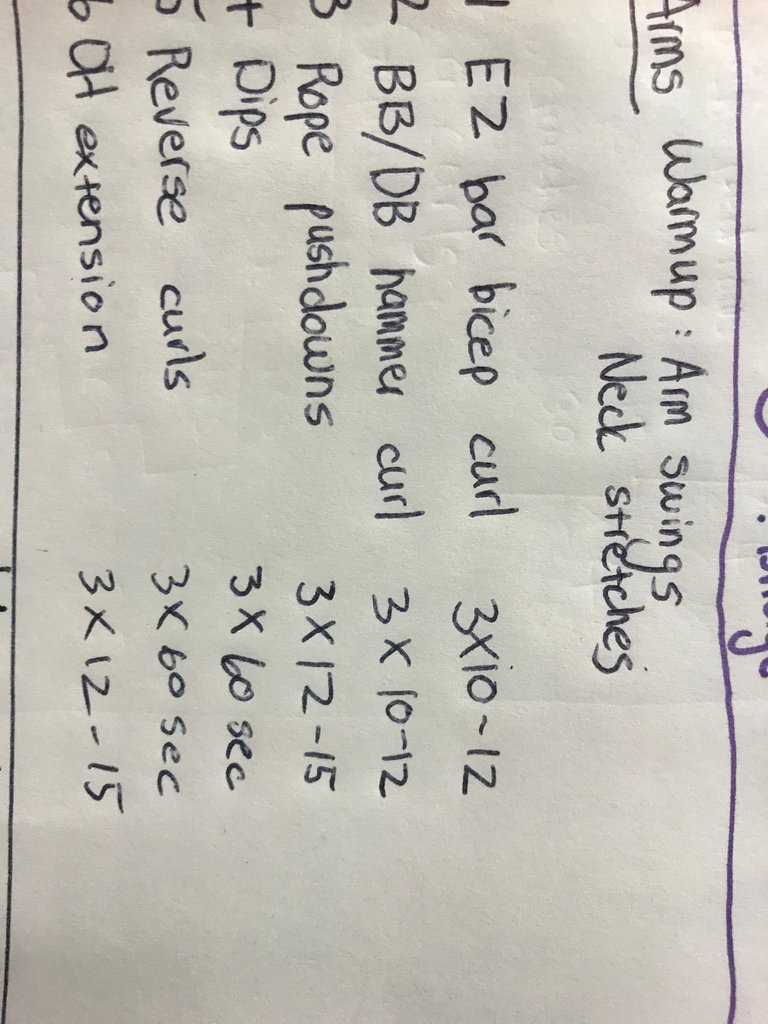 Arms Warmup: Arm swings
Neck stretches
1 EZ bar bicep curl 3x10-12
2 BB/DB hammer curl 3x10-12
3 Rope pushdowns 3x12-15
4 Dips 3x60sec
5 Reverse curls 3x60sec
6 OH extension 3x12-15